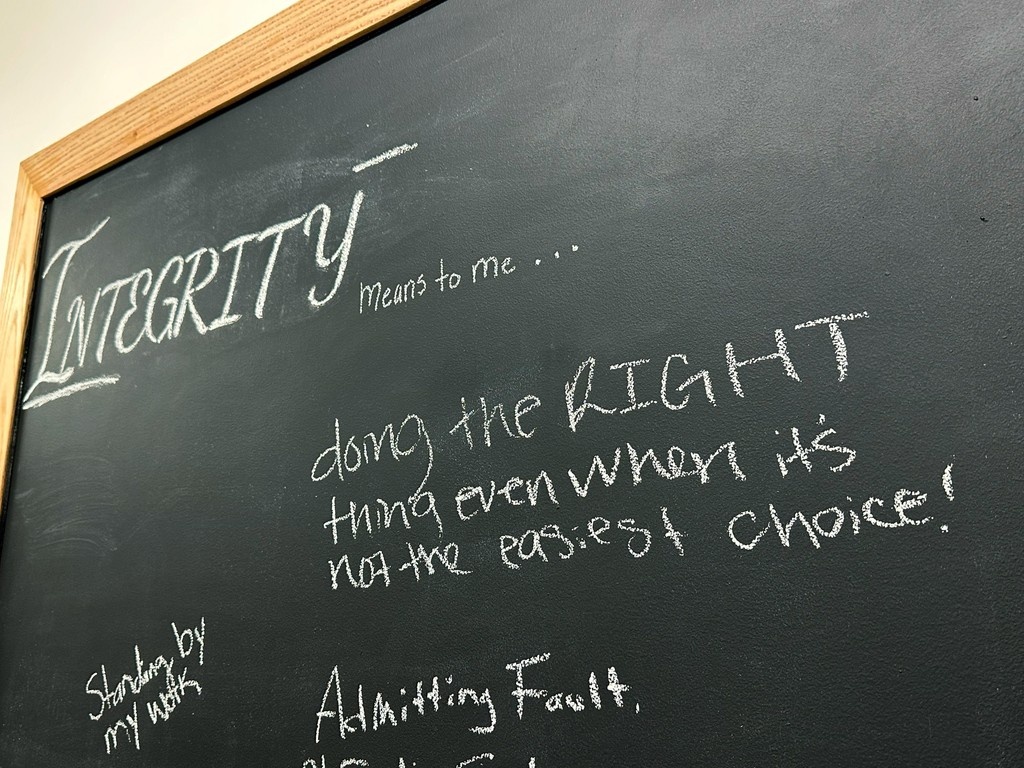 INTEGRITY means to me...
doing the RIGHT
thing even when it's
not the easiest choice!
Standing by
my work
Admitting Fault.